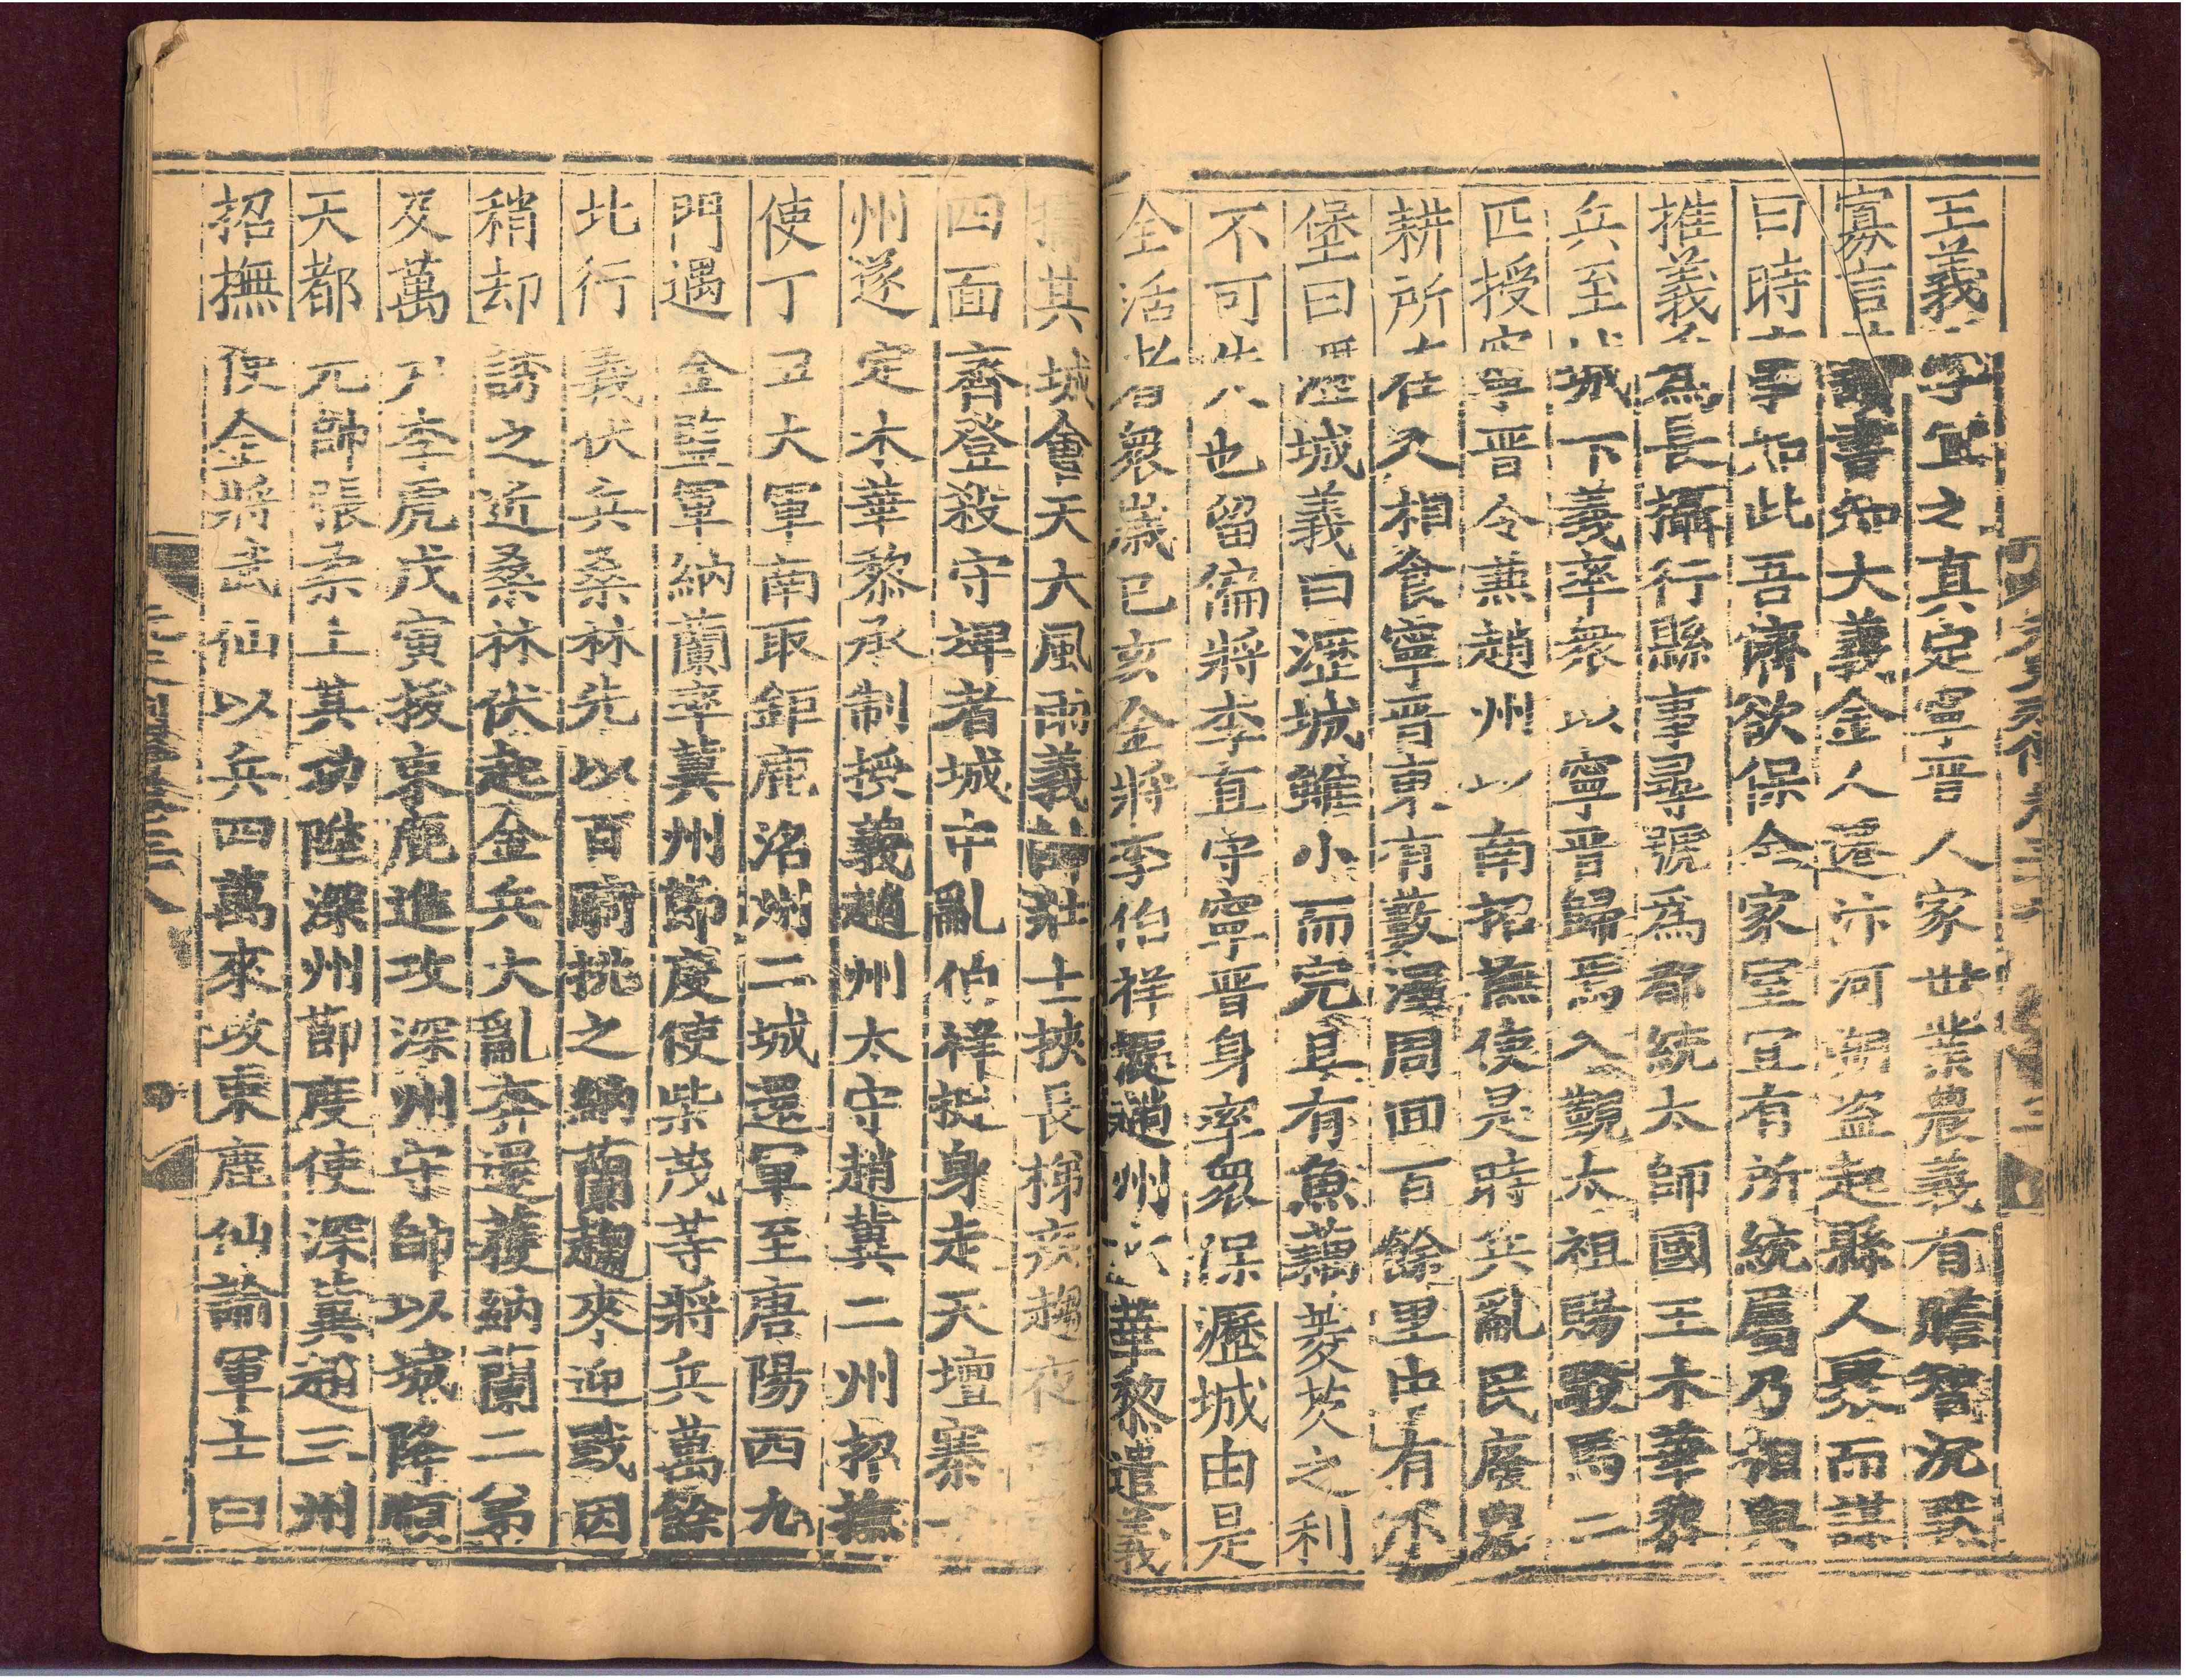 王義字宜之真定寧晉人家世業農義有膽智沉默
寡言讀書知大義金人遷汴河朔盜起縣人聚而謀
曰時事如此吾儕欲保全家室宜有所統屬乃相與
推義為長攝行縣事尋號爲都統太師國王木華黎
兵至城下義率衆以寧晉歸焉入覲太祖賜駿馬二
匹授寧晉令兼趙州以南招撫使是時兵亂民廢農
耕所在人相食寧晉東有藪澤周回百餘里中有小
堡曰瀝城義曰瀝城雖小而完且有魚藕菱芡之利
不可失也留偏將李直守寧晉身率衆保瀝城由是
全活者衆歲己亥金將李伯祥據趙州木華黎遣義
擣其城會天大風雨義帥壯士挾長梯疾趨夜
四面齊登殺守埤者城中亂伯祥挺身走天壇寨一
州遂定木華黎承制授義趙州太守趙冀二州招撫
使丁丑大軍南取鉅鹿洺州二城還軍至唐陽西九
門遇金監軍納蘭率冀州節度使柴茂等將兵萬餘
北行義伏兵桑林先以百騎挑之納蘭趨來迎戰因
稍却誘之近桑林伏起金兵大亂奔還獲納蘭二弟
及萬戶李虎戊寅拔束鹿進攻深州守帥以城降順
天都元帥張柔上其功陞深州節度使深冀趙三州
招撫使金將武仙以兵四萬來攻束鹿仙諭軍士曰